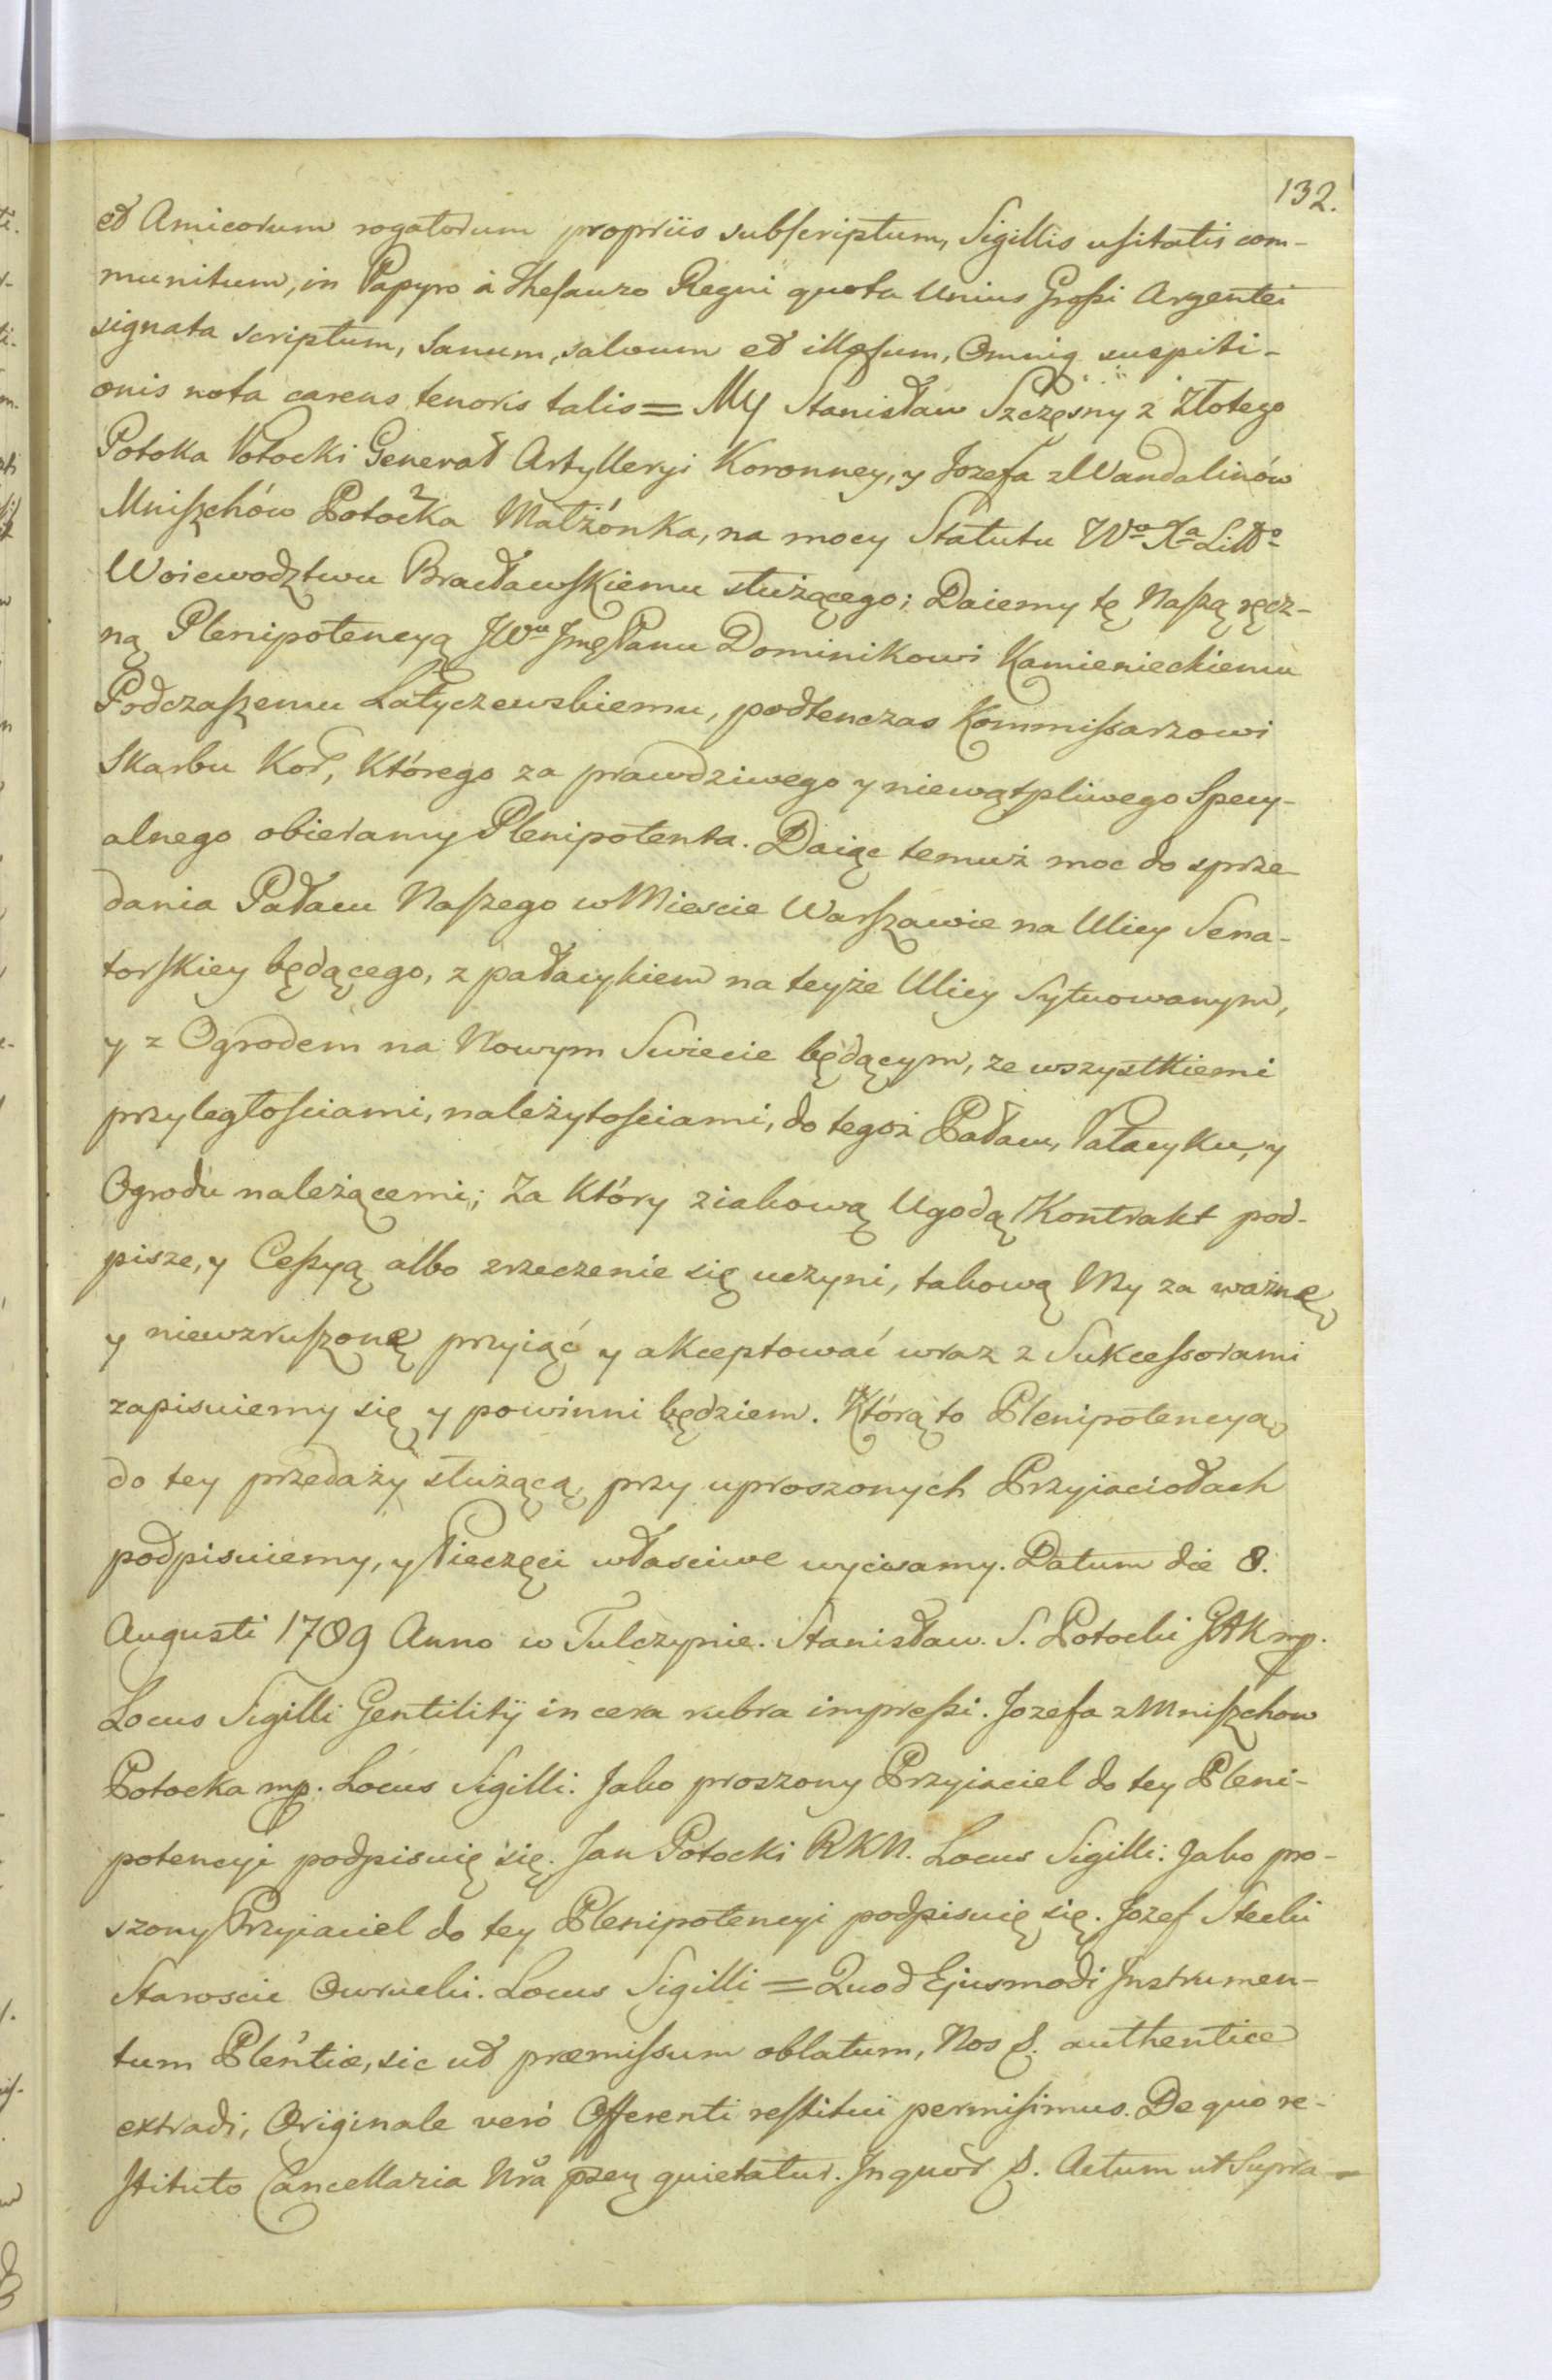 132.
et Amicorum rogatorum propriis subscriptum, Sigillis usitatis com-
munitum, in Papyro à Thesauro Regni quota Unius Grossi Argentei
signata scriptum, Sanum, salvum et illæsum, Omniq suspiti-
onis nota carens tenoris talis = My Stanisław Szczęsny z Złotego
Potoka Potocki Generał Artylleryi Koronney, y Jozefa z Wandalinów
Mniszchów Potocka Małżónka, na mocy Statutu Wo Xa Litto
Woiewodztwu Bracławskiemu służącego; Daiemy tę Naszą ręcz-
ną Plenipotencyą JWu Jmę Panu Dominikowi Kamienieckiemu
Podczaszemu Latyczewskiemu, podtenczas Kommissarzowi
Skarbu Kor, Którego za prawdziwego y niewątpliwego Specy-
alnego obieramy Plenipotenta. Daiąc temuż moc do sprze
dania Pałacu Naszego w Miescie Warszawie na Ulicy Sena-
torskiey będącego, z pałacykiem na teyże Ulicy Sytuowanym,
y z Ogrodem na Nowym Swiecie będącym, ze wszystkiemi
przyległościami, należytościami, do tegoż Pałacu, Pałacyku, y
Ogrodu należącemi; Za Który ziakową Ugodą Kontrakt pod-
pisze, y Cessyą albo zrzeczenie się uczyni, takową My za ważnę
y niewzruszonę przyiąć y akceptować wraz z Sukcessorami
zapisuiemy się y powinni będziem. Którą to Plenipotencyą
do tey przedaży służącą, przy uproszonych Przyiaciołach
podpisuiemy, y Pieczęci własciwe wycisamy. Datum die 8.
Augusti 1789 Anno w Tulczynie. Stanisław. S. Potocki GAK mp.
Locus Sigilli Gentilitÿ in cera rubra impressi. Jozefa z Mniszchow
Potocka mp. Locus Sigilli. Jako proszony Przyiaciel do tey Pleni-
potencyi podpisuię się. Jan Potocki RKN. Locus Sigilli. Jako pro-
szony Przyiaciel do tey Plenipotencyi podpisuię się. Jozef Stecki
Staroscic Owrucki. Locus Sigilli = Quod Ejusmodi Instrumen-
tum Plentiæ, sic ut præmissum oblatum, Nos S. authentice
extradi, Originale verò Offerenti restitui permisimus. De quo re-
stituto Cancellaria Nra pzey quietatur. In quor S. Actum ut Supra